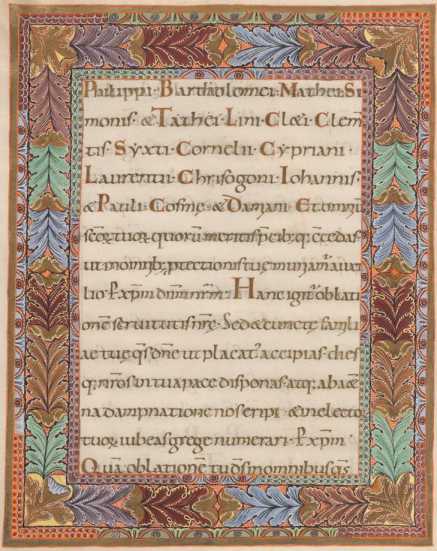 Philippi · Bartholomei · Mathei · Si
monis · & Tathei · Lini · Cleti · Clem̄
tis · Syxti · Cornelii · Cypriani ·
Laurentii · Chrisogoni · Iohannis
& Pauli · Cosme · & Damiani · Et omniū
sc̄or̄ tuor̄ quorū meritis p̄cib; q; c̄cedas
ut in omnib; ptectionis tuę muniam̄ auxi
lio · P xp̄m dn̄m nr̄m · Hanc igit̄ oblati
onē servitutis nrę · Sed & cunctę famili
ae tuę qs̄ dn̄e ut placat̄ accipias · dies
q; nr̄os in tua pace disponas · atq; ab aet̄
na dampnatione nos eripi · & in electo
tuor̄ iubeas grege numerari · P xp̄m ·
Quā oblationē tu ds̄ in omnibus qs̄